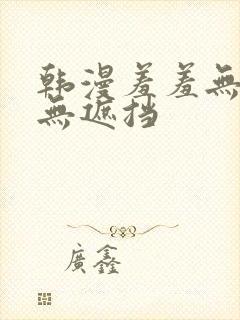 韩漫羞羞無
無遮挡
廣鑫